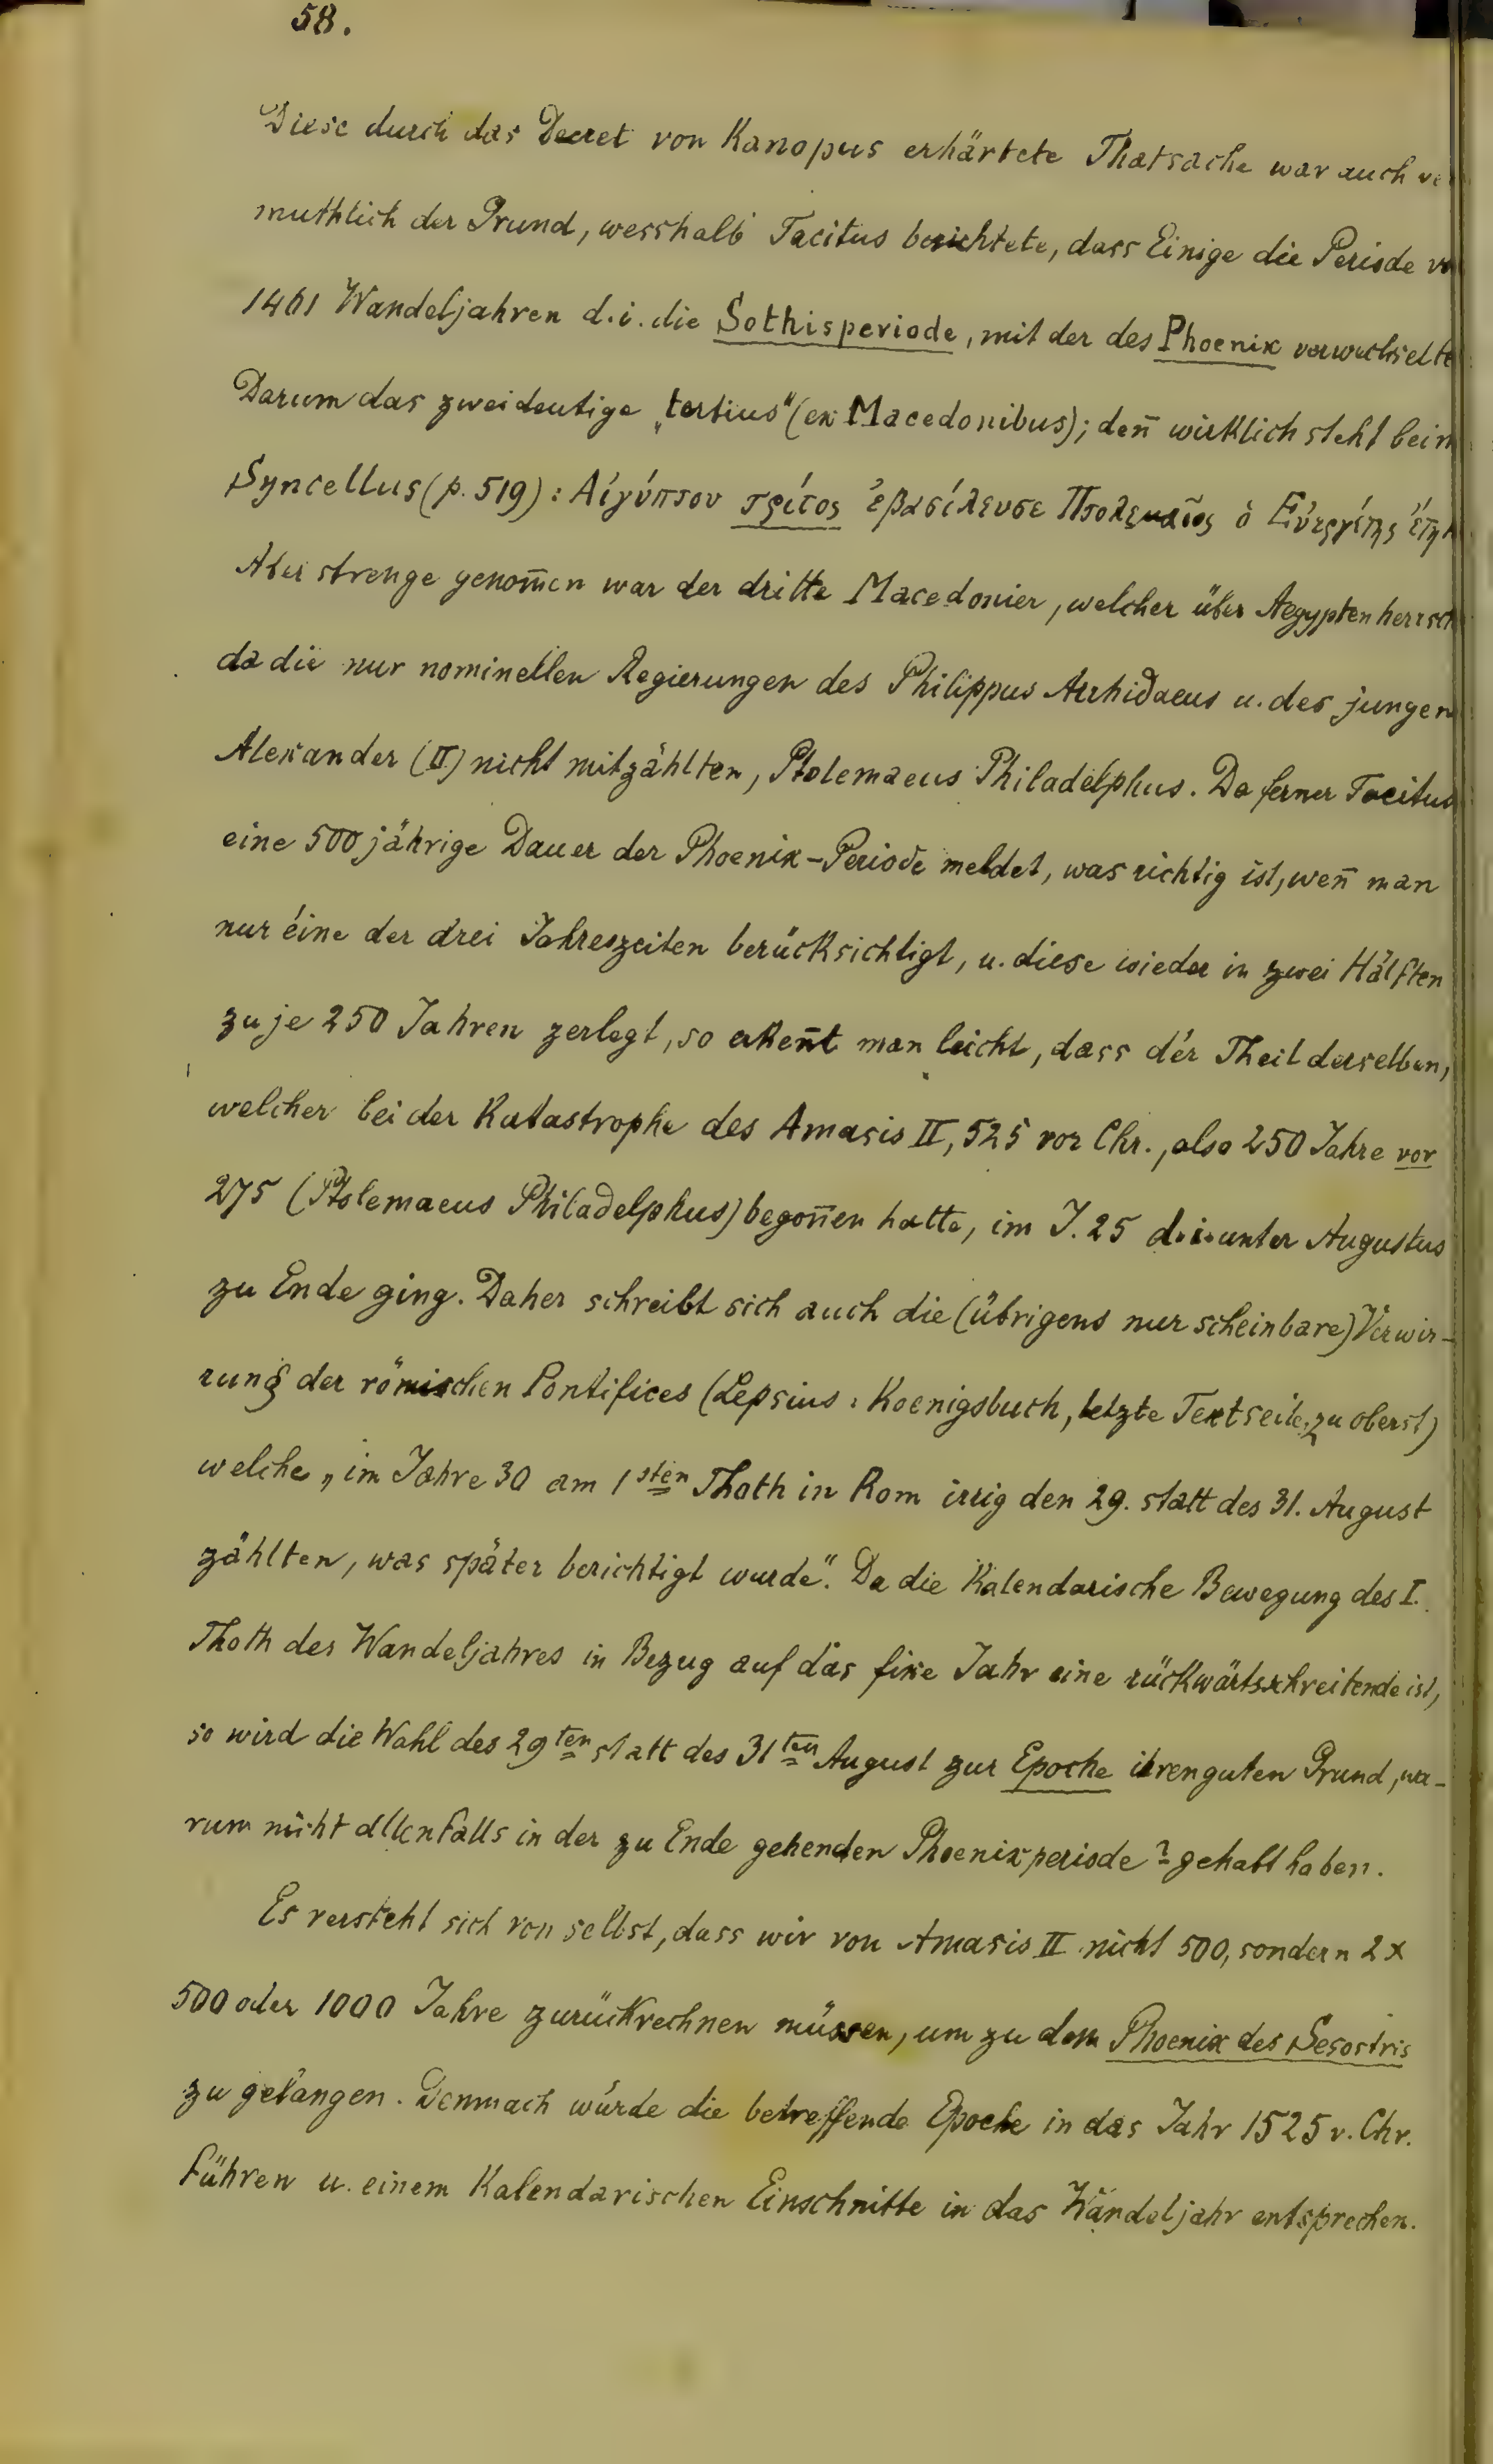 58.
Diese durch das Decret von Kanopus erhärtete Thatsache war auch ve
muthlich der Grund, wesshalb Tacitus berichtete, dass Einige die Periode vo
1461 Wandeljahren d.i. die Sothisperiode, mit der des Phoenix verwechselte
Darum das zweideutige „tertius“ (ex Macedonibus); den̅ wirklich steht beim
Syncellus (p. 519): Αἰγύπτου τρίτος ἐβασίλευσε Πτολεμαῖος ὁ Εὐεργέτης ἔτη
Aber strenge genom̅en war der dritte Macedonier, welcher über Aegypten herrsch
da die nur nominellen Regierungen des Philippus Arrhidaeus u. des jungen
Alexander (II) nicht mitzählten, Ptolemaeus Philadelphus. Da ferner Tacitus
eine 500jährige Dauer der Phoenix-Periode meldet, was richtig ist, wen̅ man
nur éine der drei Jahreszeiten berücksichtigt, u. diese wieder in zwei Hälften
zu je 250 Jahren zerlegt, so erken̅t man leicht, dass dér Theil derselben,
welcher bei der Katastrophe des Amasis II, 525 vor Chr., also 250 Jahre vor
275 (Ptolemaeus Philadelphus) begon̅en hatte, im J. 25 d.i. unter Augustus
zu Ende ging. Daher schreibt sich auch die (übrigens nur scheinbare) Verwir-
rung der römischen Pontifices (Lepsius: Koenigsbuch, letzte Textseite, zu oberst)
welche „im Jahre 30 am 1sten Thoth in Rom irrig den 29. statt des 31. August
zählten, was später berichtigt wurde“. Da die Kalendarische Bewegung des I.
Thoth des Wandeljahres in Bezug auf das fixe Jahr eine rückwärtsschreitende ist,
so wird die Wahl des 29ten statt des 31ten August zur Epoche ihren guten Grund, wa-
rum nicht allenfalls in der zu Ende gehenden Phoenixperiode? gehabt haben.
Es versteht sich von selbst, dass wir von Amasis II nicht 500, sondern 2x
500 oder 1000 Jahre zurückrechnen müssen, um zu dem Phoenix des Sesostris
zu gelangen. Demnach würde die betreffende Epoche in das Jahr 1525 v. Chr.
führen u. einem Kalendarischen Einschnitte in das Wandeljahr entsprechen.